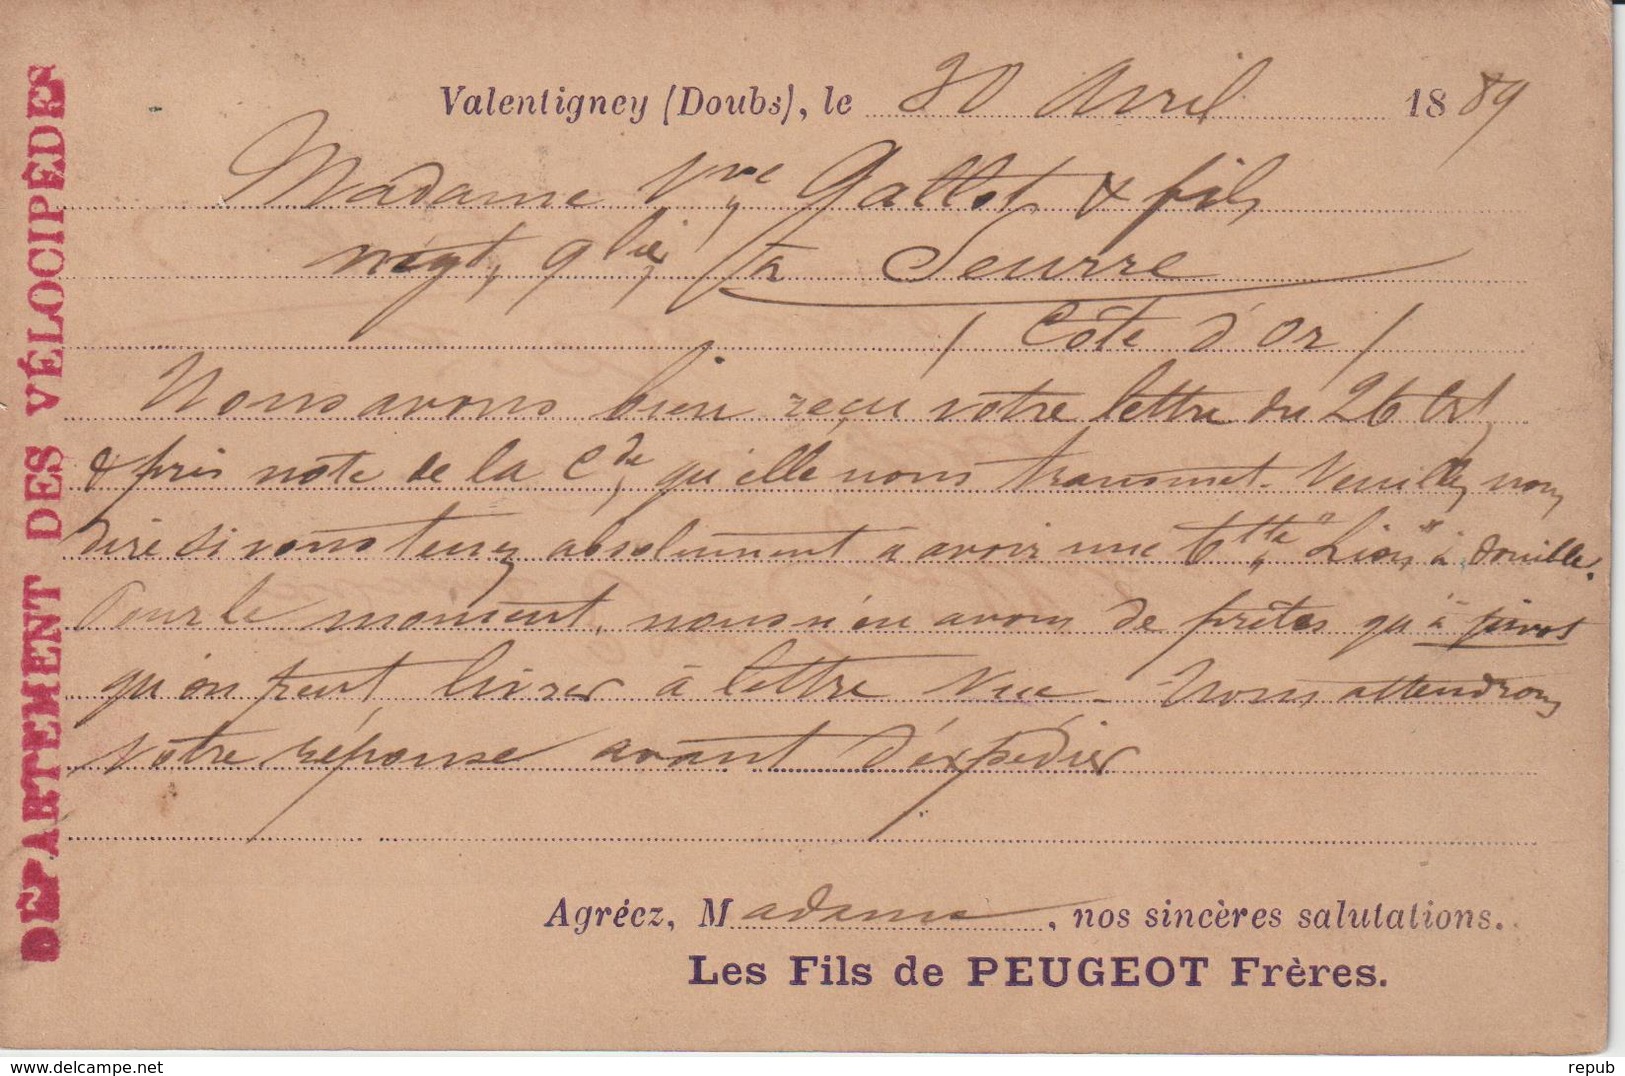 DÉPARTEMENT DES VÉLOCIPÈDES
Valentigney (Doubs), le 30 Avril 1889
Madame Vve Gallot & fils
negt, qlier, à Seurre
(Côte d'Or)
Nous avons bien reçu votre lettre du 26 Ct
& pris note de la Cde, qu'elle nous transmet. Veuillez nous
dire si vous tenez absolument à avoir une btte "Lion" à douille.
Pour le moment, nous n'en avons de prêtes qu'à pivot
qu'on peut livrer à lettre vue. Nous attendrons
votre réponse avant d'expédier
Agréez, Madame, nos sincères salutations.
Les Fils de PEUGEOT Frères.
www.delcampe.net
repub